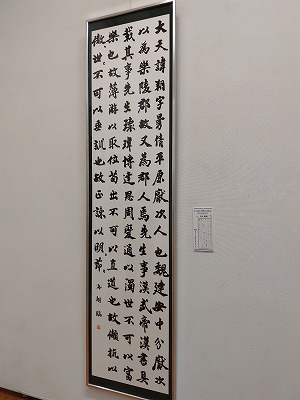 大夫諱朔字曼倩平原厭次人也魏建安中分厭次
以為樂陵郡故又為郡人焉先生事漢武帝漢書具
載其事先生瑰瑋博達思周變通以濁世不可以富
樂也故薄游以取位苟出不可以直道也故頡頏以
傲世不可以垂訓也故正諫以明節
臨